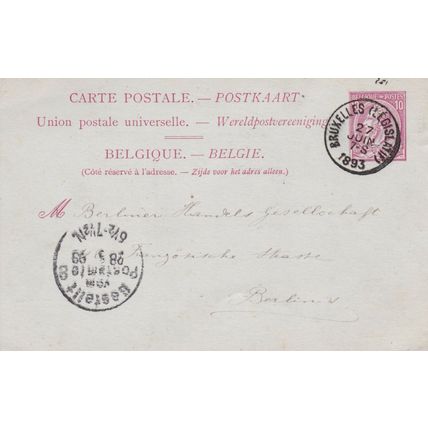 CARTE POSTALE. — POSTKAART
Union postale universelle. — Wereldpostvereeniging
BELGIQUE. — BELGIE.
(Côté réservé à l'adresse. — Zijde voor het adres alleen.)
BELGIQUE POSTES
10
BRUXELLES (LEGISLATIF)
27
JUIN
1893
M Berliner Handels Gesellschaft
Französische Strasse
Berlin
Bestellt
vom
Postamte
6½-7½N.